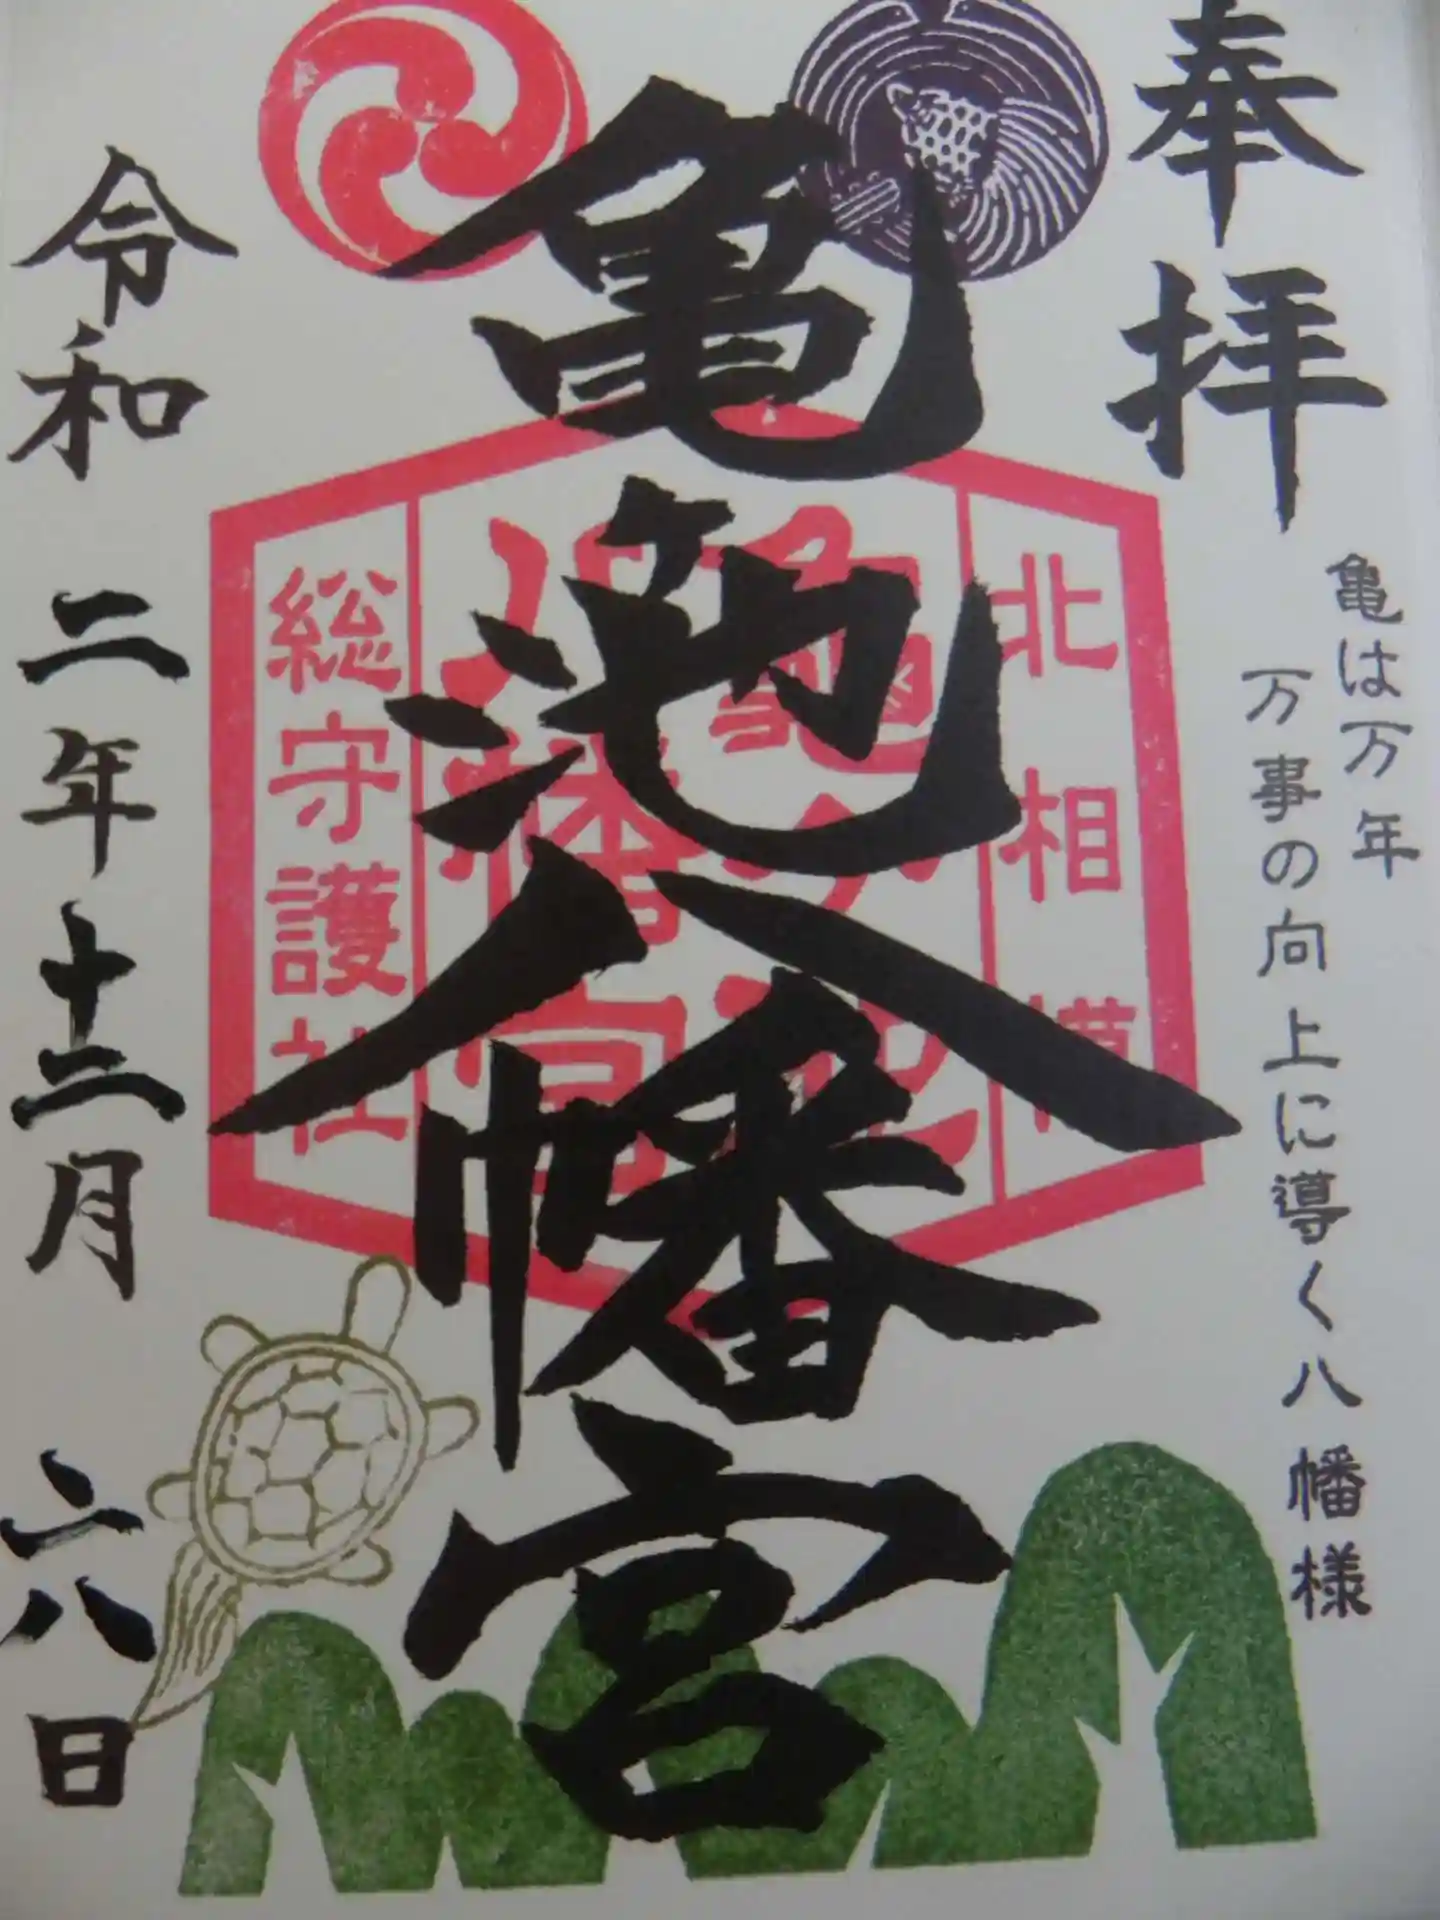 奉拝
亀は万年
万事の向上に導く八幡様
亀池八幡宮
北相模
亀ヶ池
八幡宮
総守護社
令和二年十二月六八日